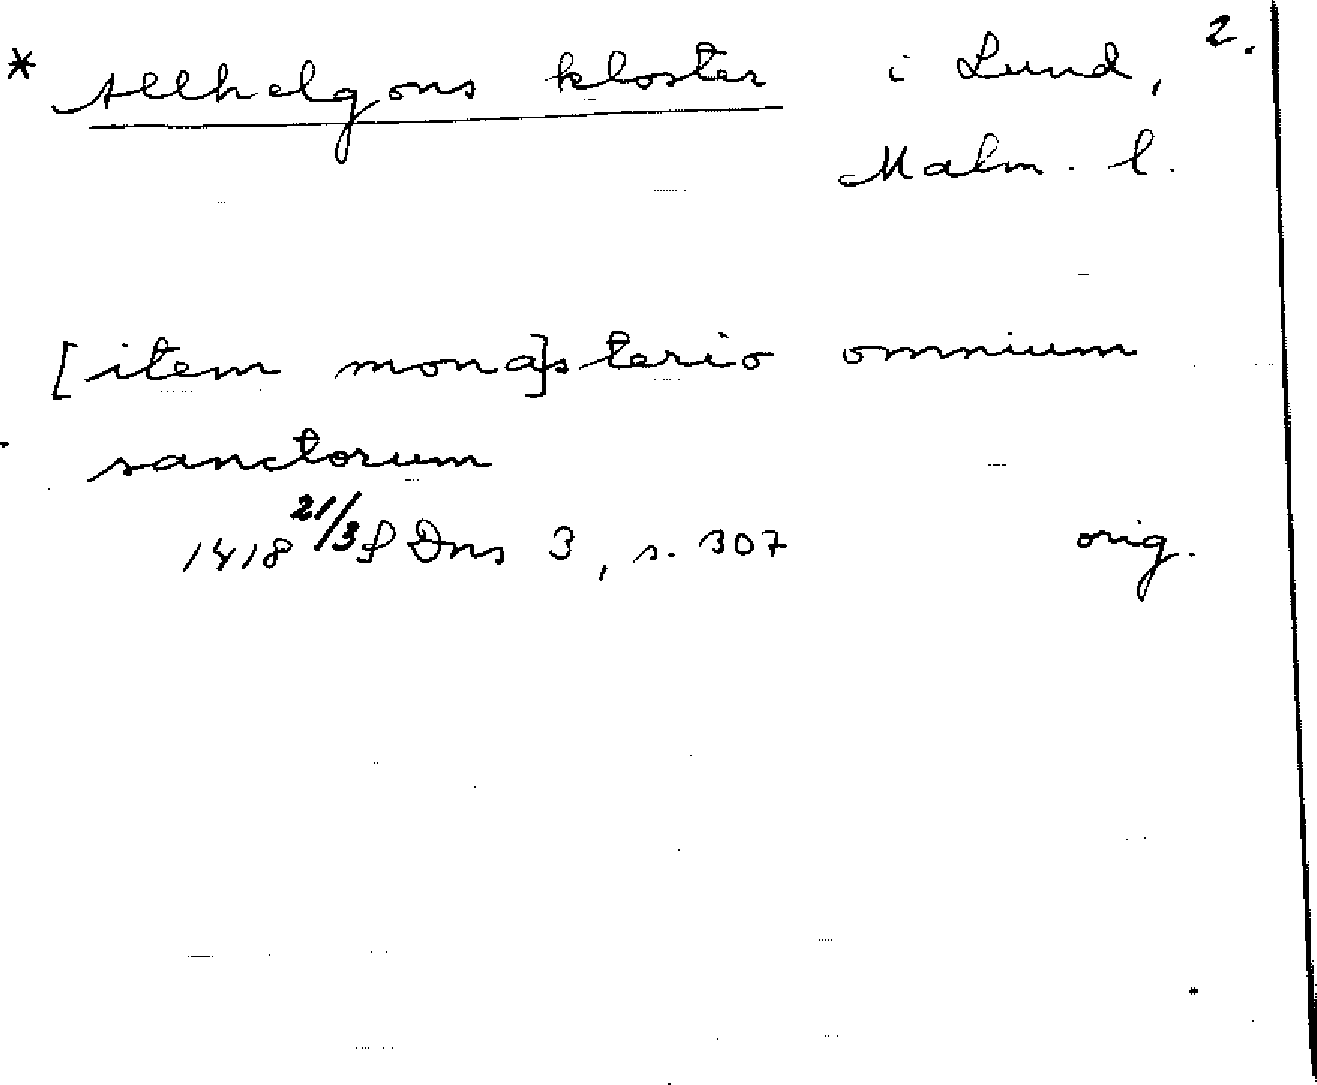 * Allhelgons kloster i Lund, 2.
Malm. l.
[item mona]sterio omnium
sanctorum
1418 21/3 SDns 3, s. 307 orig.